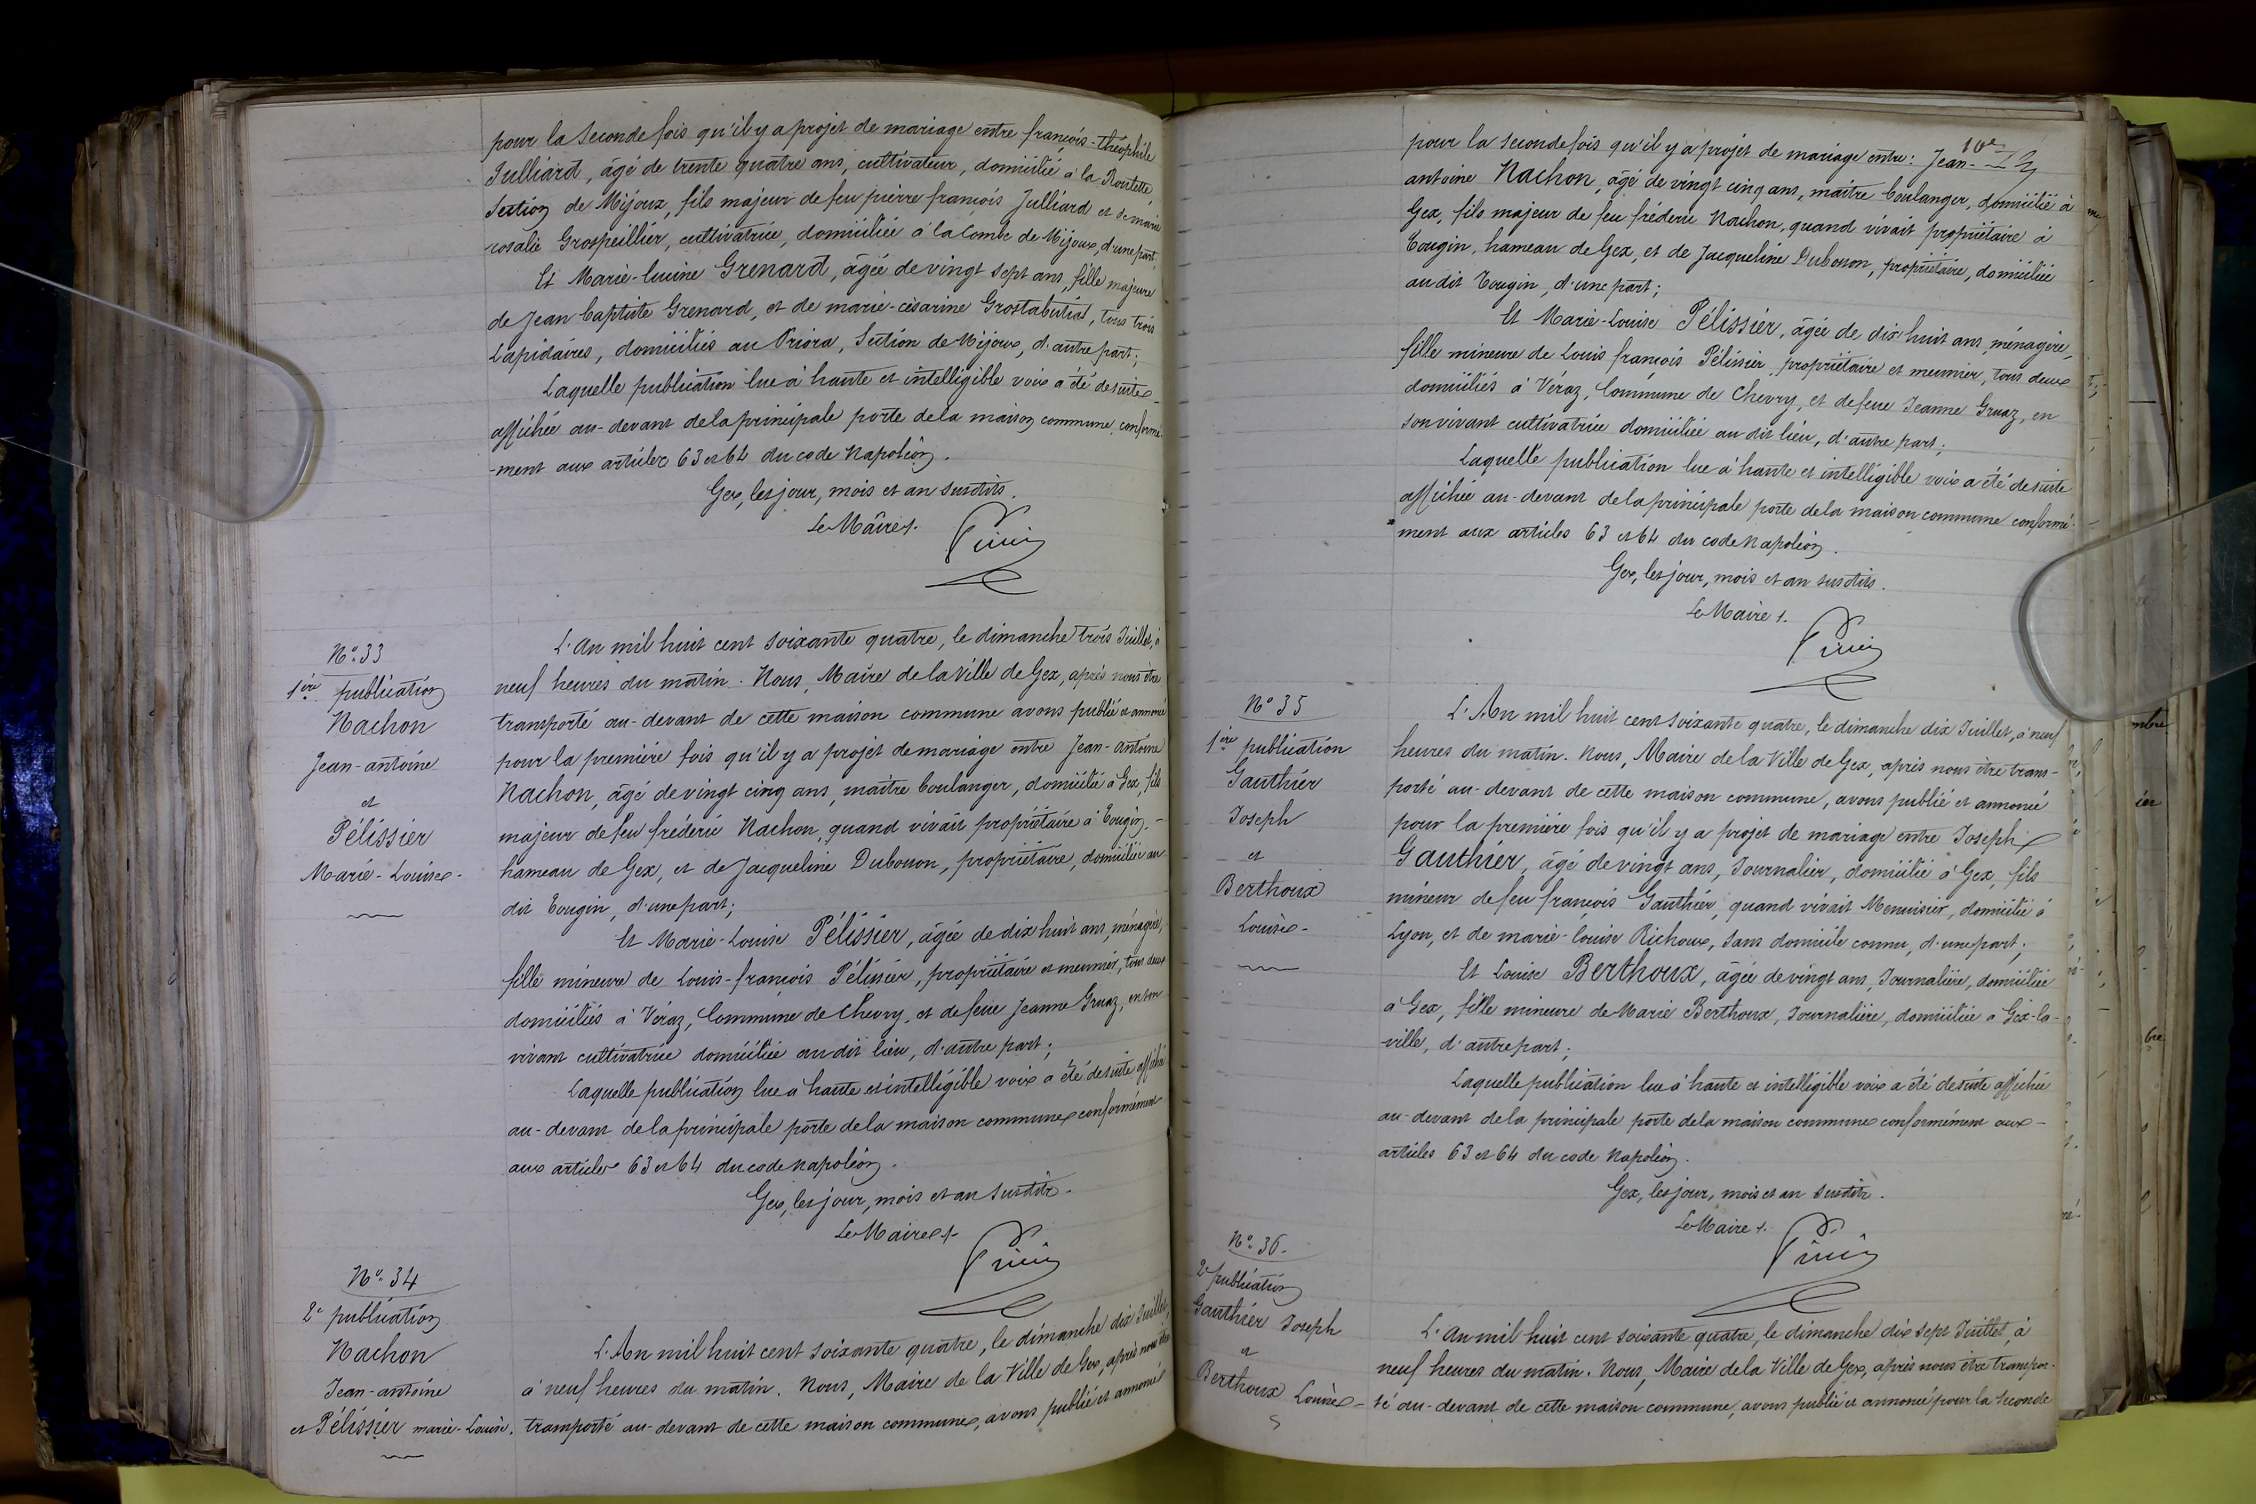 pour la seconde fois qu'il y a projet de mariage entre françois-théophile
Julliard, âgé de trente quatre ans, cultivateur, domicilié à la
Section de Mijoux, fils majeur de feu pierre françois Julliard et de marie
rosalie Grospeillier, cultivatrice, domiciliée à la Combe de Mijoux, d'une part,
Et Marie-lucine Grenard, âgée de vingt sept ans, fille majeure
de Jean baptiste Grenard, et de marie-césarine, tous trois
Lapidaires, domiciliés au Priora, Section de Mijoux, d'autre part;
Laquelle publication lue à haute et intelligible voix a été de suite
affichée au-devant de la principale porte de la maison commune, conformé-
-ment aux articles 63 et 64 du code Napoléon.
Gex, les jour, mois et an susdits.
Le Maire.
N° 33
1ère publication
Nachon
Jean-antoine
et
Pélissier
Marie-Louise-
L'An mil huit cent soixante quatre, le dimanche trois Juillet, à
neuf heures du matin. Nous, Maire de la Ville de Gex, après nous être
transporté au-devant de cette maison commune avons publié et annoncé
pour la première fois qu'il y a projet de mariage entre Jean-antoine
Nachon, âgé de vingt cinq ans, maître boulanger, domicilié à Gex, fils
majeur de feu fréderic Nachon, quand vivait propriétaire à Tougin,
hameau de Gex, et de Jacqueline Dubouon, propriétaire, domiciliée au
dit Tougin, d'une part;
Et Marie-Louise Pélissier, âgée de dix huit ans, ménagère,
fille mineure de Louis-françois Pélissier, propriétaire et meunier, tous deux
domiciliés à Véraz, Commune de Chevry, et de feue Jeanne Gruaz, en son
vivant cultivatrice domiciliée au dit lieu, d'autre part;
Laquelle publication lue à haute et intelligible voix a été de suite affichée
au-devant de la principale porte de la maison commune conformément
aux articles 63 et 64 du code napoléon.
Gex, les jour, mois et an susdits.
Le Maire
N° 34
2e publication
Nachon
Jean-antoine
et Pélissier marie-Louise.
L'An mil huit cent soixante quatre, le dimanche dix Juillet,
à neuf heures du matin. Nous, Maire de la Ville de Gex, après nous être
transporté au-devant de cette maison commune, avons publié et annoncé
10e
pour la seconde fois qu'il y a projet de mariage entre: Jean-
antoine Nachon, âgé de vingt cinq ans, maître boulanger, domicilié à
Gex, fils majeur de feu fréderic Nachon, quand vivait propriétaire à
Tougin, hameau de Gex, et de Jacqueline Dubouon, propriétaire, domiciliée
au dit Tougin, d'une part;
Et Marie-Louise Pélissier, âgée de dix huit ans, ménagère,
fille mineure de Louis françois Pélissier, propriétaire et meunier, tous deux
domiciliés à Véraz, Commune de Chevry, et de feue Jeanne Gruaz, en
son vivant cultivatrice domiciliée au dit lieu, d'autre part;
Laquelle publication lue à haute et intelligible voix a été de suite
affichée au-devant de la principale porte de la maison commune conformé-
ment aux articles 63 et 64 du code napoléon.
Gex, les jour, mois et an susdits.
Le Maire.
N° 35
1ère publication
Gauthier
Joseph
et
Berthoux
Louise-
L'An mil huit cent soixante quatre, le dimanche dix Juillet, à neuf
heures du matin. Nous, Maire de la Ville de Gex, après nous être trans-
porté au-devant de cette maison commune, avons publié et annoncé
pour la première fois qu'il y a projet de mariage entre Joseph
Gauthier, âgé de vingt ans, Journalier, domicilié à Gex, fils
mineur de feu françois Gauthier, quand vivait Menuisier, domicilié à
Lyon, et de marie-louise Richoux, sans domicile connu, d'une part;
Et Louise Berthoux, âgée de vingt ans, Journalière, domiciliée
à Gex, fille mineure de Marie Berthoux, Journalière, domiciliée à Gex-la-
ville, d'autre part;
Laquelle publication lue à haute et intelligible voix a été de suite affichée
au-devant de la principale porte de la maison commune conformément aux-
articles 63 et 64 du code napoléon.
Gex, les jour, mois et an susdits.
Le Maire.
N° 36.
2e publication
Gauthier Joseph
et
Berthoux Louise-
L'An mil huit cent soixante quatre, le dimanche dix sept Juillet, à
neuf heures du matin. Nous, Maire de la Ville de Gex, après nous être transpor-
té au-devant de cette maison commune, avons publié et annoncé pour la seconde